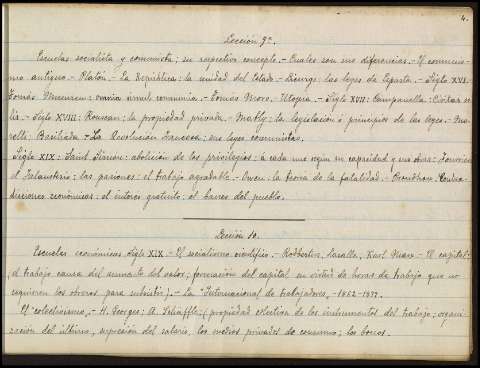 4.
Lección 9ª.
Escuelas socialista y comunista; su respectivo concepto.- Cuales son sus diferencias.- El comunis-
mo antiguo.- Platón.- La República: la unidad del Estado.- Licurgo: las leyes de Esparta.- Siglo XVI.-
Tomás Munzer: omnia simul communia.- Tomás Moro, Utopia.- Siglo XVII: Campanella: Civitas so-
lis.- Siglo XVIII: Rousseau; la propiedad privada.- Mably: la legislación o principios de las leyes.- Mo-
relli: Basiliada.- La Revolución Francesa: sus leyes comunistas.
Siglo XIX: Saint Simon: abolición de los privilegios: a cada uno según su capacidad y sus obras: Fourier:
el Falansterio; las pasiones: el trabajo agradable.- Owen: la teoría de la fatalidad.- Proudhon: Contra-
dicciones económicas: el interés gratuito, el banco del pueblo.
Lección 10.
Escuelas económicas siglo XIX.- El socialismo científico.- Rodbertus, Lasalle, Karl Marx.- El capital:
(el trabajo causa del aumento del valor; formación del capital en virtud de horas de trabajo que no
requieren los obreros para subsistir).- La Internacional de trabajadores,-1862-1877.
El eclecticismo,- H. Georges; A. Schaffle; (propiedad colectiva de los instrumentos del trabajo; organi-
zación del último, supresión del salario, los medios privados de consumo; los bonos.